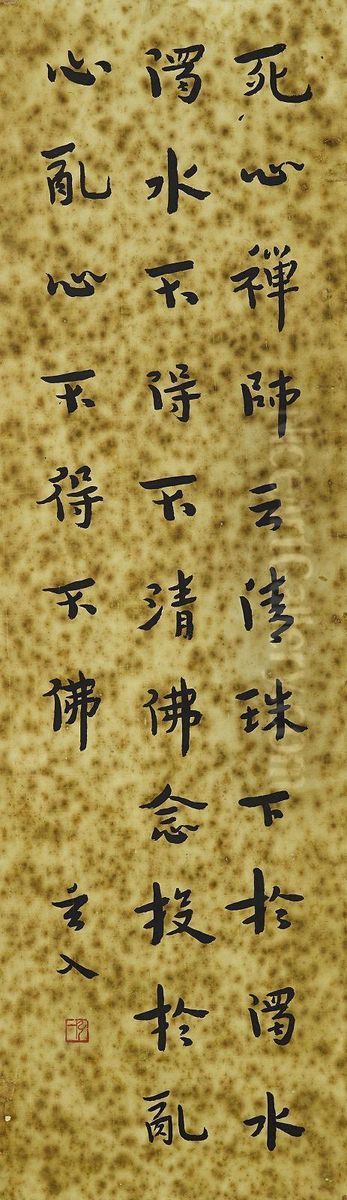 死心禅師云清珠下於濁水
濁水不得不清佛念投於亂
心亂心不得不佛
玄入